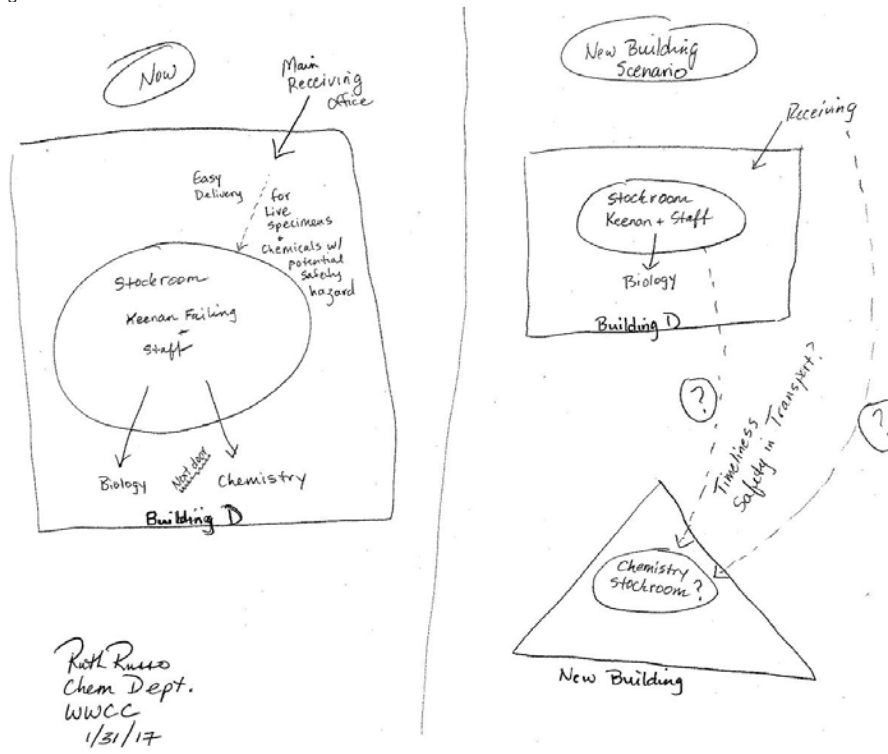 Now
Main
Receiving
Office
Easy
Delivery
for
Live
specimens
+
Chemicals w/
potential
safety
hazard
Stockroom
Keenan Failing
+
Staff
Biology
Next door
Chemistry
Building D
Ruth Russo
Chem Dept.
WWCC
1/31/17
New Building
Scenario
Receiving
Stockroom
Keenan + Staff
Biology
Building D
?
?
Timeliness
Safety in Transport?
Chemistry
Stockroom?
New Building